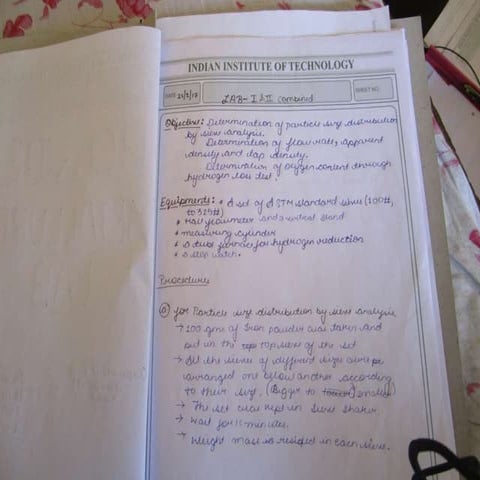 INDIAN INSTITUTE OF TECHNOLOGY
DATE 24/2/17
LAB- I & II combined
SHEET NO.
Objective: Determination of particle size distribution
by sieve analysis.
Determination of flow rate, apparent
density and tap density.
Determination of oxygen content through
hydrogen loss test.
Equipments: * A set of ASTM standard sieve (100#,
to 325#)
* Hall flowmeter and a vertical stand
* measuring cylinder
* A tube furnace for hydrogen reduction
* A stop watch.
Procedure
a for Particle size distribution by sieve analysis
→ 100 gms of Iron powder was taken and
put in the top top sieve of the set
→ All the sieves of different size were
arranged one below another according
to their size. (Bigger to smaller)
→ The set was kept in sieve shaker.
→ Wait for 11 minutes.
→ Weight mass in each sieve.